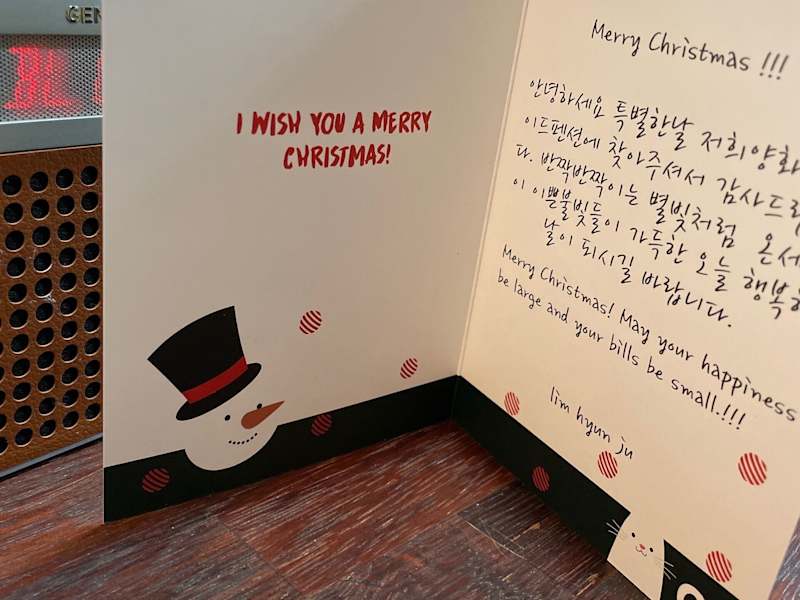 GEN
BL
I WISH YOU A MERRY
CHRISTMAS!
Merry Christmas !!!
안녕하세요 특별한날 저희양화
이드펜션에 찾아주셔서 감사드
다. 반짝반짝이는 별빛처럼 온세
이 이쁜불빛들이 가득한 오늘 행복한
날이 되시길 바랍니다.
Merry Christmas! May your happiness
be large and your bills be small.!!!
lim hyun ju